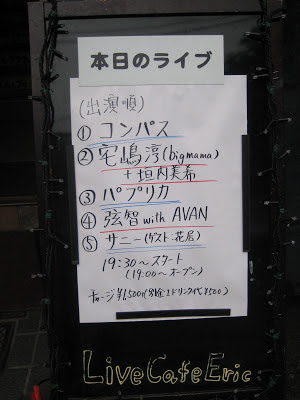 本日のライブ
(出演順)
① コンパス
② 宅嶋淳(bigmama)
+ 垣内美希
③ パプリカ
④ 弦智 with AVAN
⑤ サニー(ゲスト:花居)
19:30〜スタート
(19:00〜オープン)
チャージ¥1,500(別途1ドリンク代¥500)
LiveCafeEric